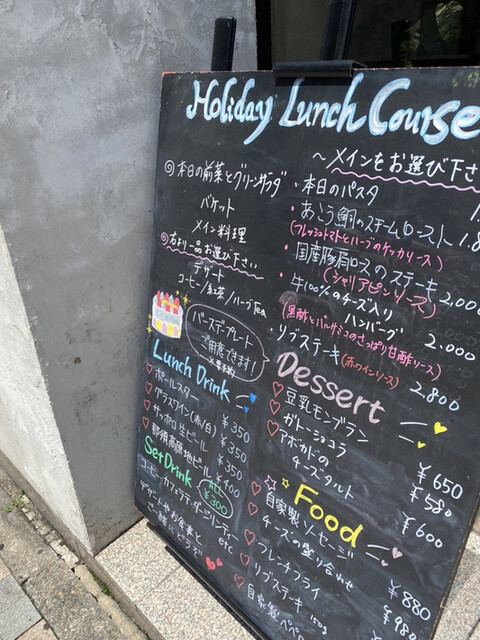 Holiday Lunch Course
◎本日の前菜とグリーンサラダ
バケット
メイン料理
◎右より一品お選び下さい
デザート
コーヒー/紅茶/ハーブTea
バースデープレート
ご用意できます!
※要予約
Lunch Drink
♡ボールスター ¥350
♡グラスワイン(赤/白) ¥350
♡サッポロ生ビール ¥350
♡那須高原地ビール ¥400
Set Drink ALL ¥300
コーヒー・カフェラテ・ダージリンティー
etc
デザートやお食事と
ご一緒にどうぞ
〜メインをお選び下さ
・本日のパスタ
・あこう鯛のスチームロースト 1.8
(フレッシュトマトとハーブのケッカソース)
・国産豚肩ロースのステーキ
(シャリアピンソース) 2,000
・牛100%のチーズ入り
ハンバーグ 2.000
(黒酢とバルサミコのさっぱり甘酢ソース)
・リブステーキ(赤ワインソース) 2,800
Dessert
♡豆乳モンブラン ¥650
♡ガトーショコラ ¥580
♡アボカドの
チーズタルト ¥600
Food
♡自家製ソーセージ ¥880
♡チーズの盛り合わせ ¥980
♡フレンチフライ
♡リブステーキ 150g
♡自家製